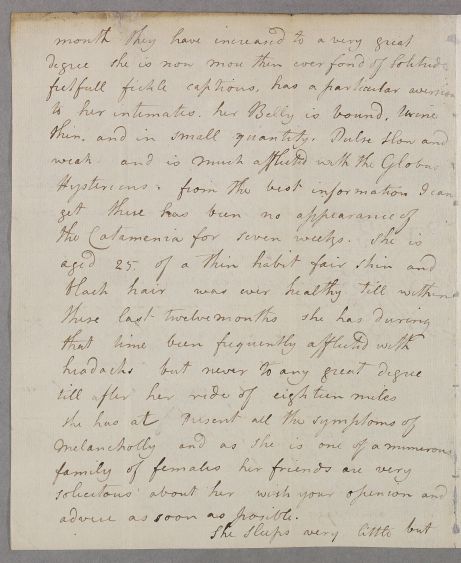 month they have increased to a very great
degree she is now mou then ever fond of Solitude
fretfull fickle captious, has a particular aversion
to her intimates. her Belly is bound, Urine
thin, and in small quantity. Pulse slow and
weak and is much afflicted with the Globus
Hystericus, from the best information I can
get there has been no appearance of
the Catamenia for seven weeks. She is
aged 25 of a thin habit fair skin and
black hair was ever healthy till within
these last twelvemonths she has during
that time been frequently afflicted with
headachs but never to any great degree
till after her ride of eighteen miles
She has at Present all the symptoms of
Melancholly and as she is one of a numerous
family of females her friends are very
solicitous about her wish your openion and
advice as soon as posible.
She sleeps very little but